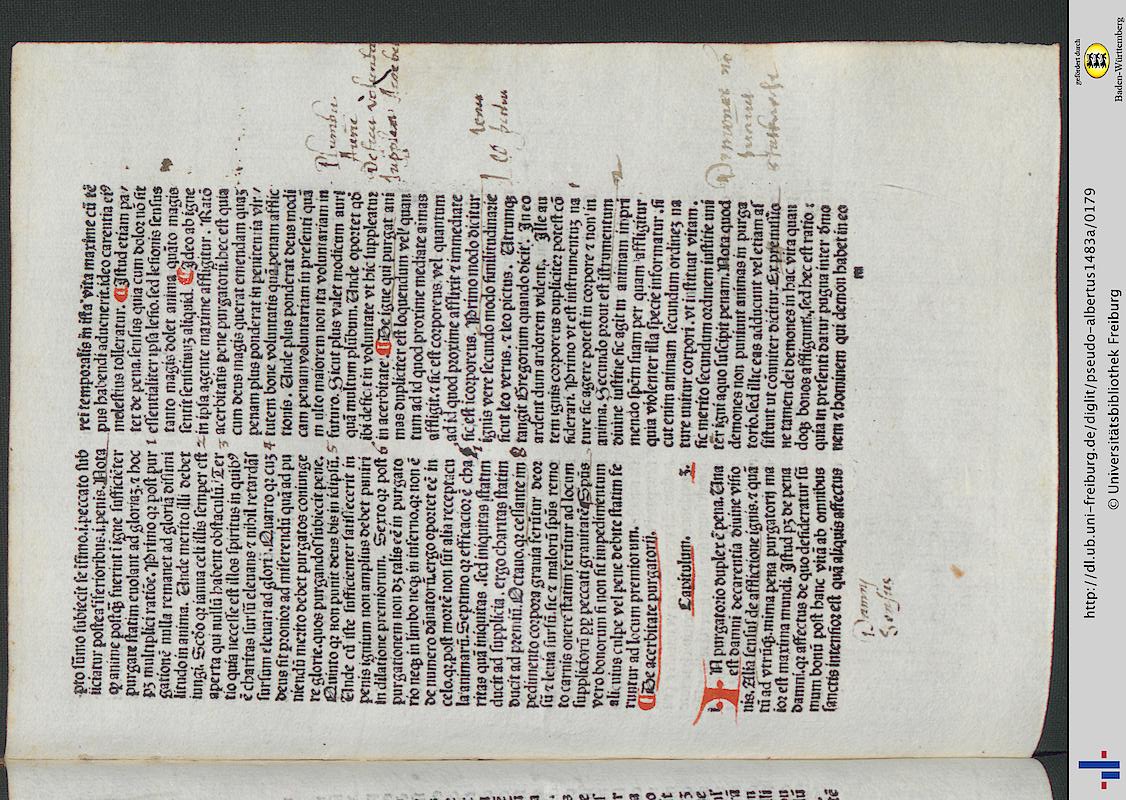 pro sūmo subiecit se ifimo.i.peccato sub
iiciatur postea iferioribus.i.penis. Nota
ꝙ anime postꝗ̄ fuerint i igne sufficiēter
purgate statim euolant ad gloriaꝫ. ⁊ hoc
pꝫ multiplici ratiōe. Primo qꝛ post pur
gationē nulla remanet ad gloriā dissimi
litudo in anima. Unde merito illi debet
iungi. Scdo qꝛ ianua celi illis semper est
aperta qui nullū habent obstaculū. Ter
tio quia necesse est illos spiritus in quibꝰ
ē charitas sursū eleuans et nihil retardās
sursum eleuari ad gloriā. Quarto qꝛ cuꝫ
deus sit pronior ad miserendū quā ad pu
niendū merito debet purgatos coniunge
re glorie. quos purgandos subiecit pene.
Quinto qꝛ non punit deus bis in idipsū.
Unde cū iste sufficienter satisfecerit in
penis ignium non amplius debet puniri
in dilatione premiorum. Sexto qꝛ post
purgationem non dꝫ talis eē in purgato
rio neqꝫ in limbo et in inferno neqꝫ non ē
de numero damnatorū. ergo oportet eē in
celo. qꝛ post mortē non sūt alia receptacu
la animarū. Septimo qꝛ efficacior ē cha
ritas quā iniquitas. sed iniquitas statim
ducit ad supplicia. ergo charitas statim
ducit ad premiū. Octauo. qꝛ cessante im
pedimento corpora grauia ferūtur deor
sū ⁊ leuia sursū. sic ⁊ malorū spūs remo
to carnis onere statim ferūtur ad locum
suppliciorū ꝓp peccati grauitatē. Spūs
vero bonorum si non sit impedimentum
alicuius culpe vel pene debite statim fe
runtur ad locum premiorum.
¶ De acerbitate purgatorii.
Capitulum. 3.
IN purgatorio duplex ē pena. Una
est damni de carentia diuine visio
nis. Alia sensus de afflictione ignis. ⁊ quā
tū ad vtrūqꝫ minima pena purgatorij ma
ior est maxima mundi. Istud pꝫ de pena
damni. qꝛ affectus de quo desideratur sū
mum bonū post hanc vitā ab omnibus
sanctis intensior est quā aliquis affectus
rei temporalis in ista vita maxime cū tē
pus habendi aduenerit. ideo carentia eiꝰ
molestius toleratur. ¶ Istud etiam pa/
tet de pena sensus quia cum dolor nō sit
essentialiter ipsa lesio sed lesionis sensus
tanto magis dolet anima quāto magis
sentit sensitiuū aliquid. ¶ Ideo ab igne
in ipsa agente maxime affligitur. Ratio
acerbitatis pene purgatorii. hec est quia
cum deus magis querat emendam quaꝫ
penam plus ponderat in penitentia vir/
tutem bone voluntatis quā penam afflic
tionis. Unde plus ponderat deus modi
cam penam voluntariam in presenti quā
multo maiorem non ita voluntariam in
futuro. Sicut plus valet modicum auri
quā multum plūbum. Unde oportet qd
ibi deficit in voluntate vt hic suppleatur
in acerbitate. ¶ De igne qui purgat ani
mas dupliciter est loquendum vel quan
tum ad id quod proxime mediate animas
affligit. ⁊ sic est corporeus. vel quantum
ad id quod proxime affligit ⁊ immediate
sic est incorporeus. Primo modo dicitur
ignis vere secundo modo similitudinarie
sicut leo verus. ⁊ leo pictus. Utrumqꝫ
tangit Gregorium quando dicit. In eo
ardent dum ardorem vident. Ille au
tem ignis corporeus dupliciter potest cō
siderari. Primo vt est instrumentuꝫ na
ture agere potest in corpore ⁊ non in
anima. Secundo prout est instrumentum
diuine iustitie sic agit in animam impri
mendo spēm suam per quam affligitur
quia violenter illa specie informatur. si
cut enim animam secundum ordineꝫ na
ture vnitur corpori. vt istituat vitam.
sic merito secundum ordinem iustitie vni
tēr igni a quo suscipit penam. Nota quod
demones non puniunt animas in purga
torio. sed illic eas adducunt vel etiam as
sistunt vt cōmuniter dicitur. Ex permissio
ne tamen dei demones in hac vita quan
doqꝫ bonos affligunt. sed hec est ratio:
quia in presenti datur pugna inter demo
nem ⁊ hominem qui demon habet in eo
m
Plumbū
Aurū
1
2
3
4
5
6
7
8
Damni
Sensus
http://dl.ub.uni-freiburg.de/diglit/pseudo-albertus1483a/0179
© Universitätsbibliothek Freiburg
gefördert durch
Baden-Württemberg